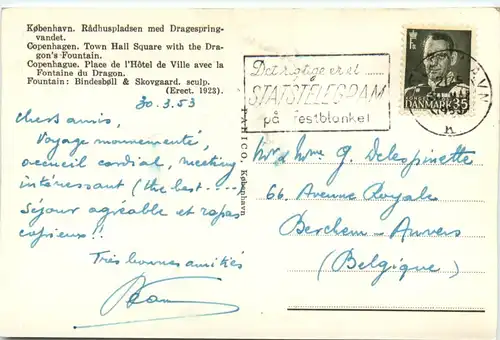 København. Rådhuspladsen med Dragespring-
vandet.
Copenhagen. Town Hall Square with the Dra-
gon's Fountain.
Copenhague. Place de l'Hôtel de Ville avec la
Fontaine du Dragon.
Fountain: Bindesbøll & Skovgaard. sculp.
(Erect. 1923).
30.3.53
Chers amis,
Voyage mouvementé,
accueil cordial, meeting
intéressant (the best----)
Séjour agréable et repas
copieux!!
Très bonnes amitiés
København
Det rigtige er et
STATSTELEGRAM
på festblanket
DANMARK 35
K
Mr & Mme G. Delespinette
66. Avenue Royale
Berchem-Anvers
(Belgique)